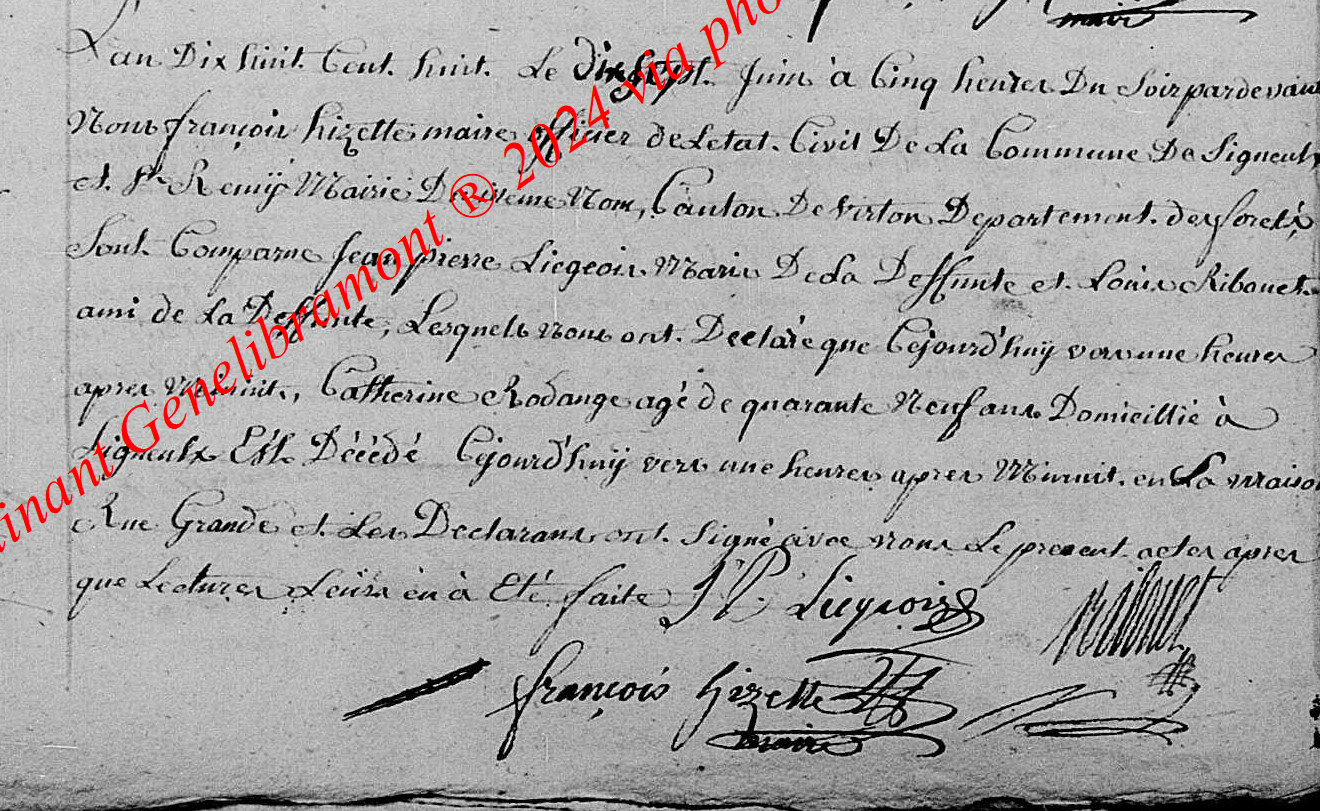 maire
L'an Dix huit Cent huit Le dix Sept Juin à Cinq heures Du Soir pardevant
Nous françois hizette maire officier de Letat Civil De La Commune De Signeulx
et St Remÿ Mairie Du meme Nom, Canton De virton Departement des forets
Sont Comparue Jean pierre Liegeois Maris De La Deffunte et Louis Ribouet
ami de La Deffunte, Lesquels nous ont Declaré que Cejourd'huÿ vers une heures
apres Minuit, Catherine Rodange agé de quarante Neuf ans Domicillié à
Signeulx Est Décédé Cejourd'huÿ vers une heures apres Minuit en La maison
Rue Grande et Les Declarans ont Signé avec nous Le present actes apres
que Lectures Leurs en à Eté faite J P Liegeois Ribouet
françois hizette
maire
inant Genelibramont ® 2024 via pho